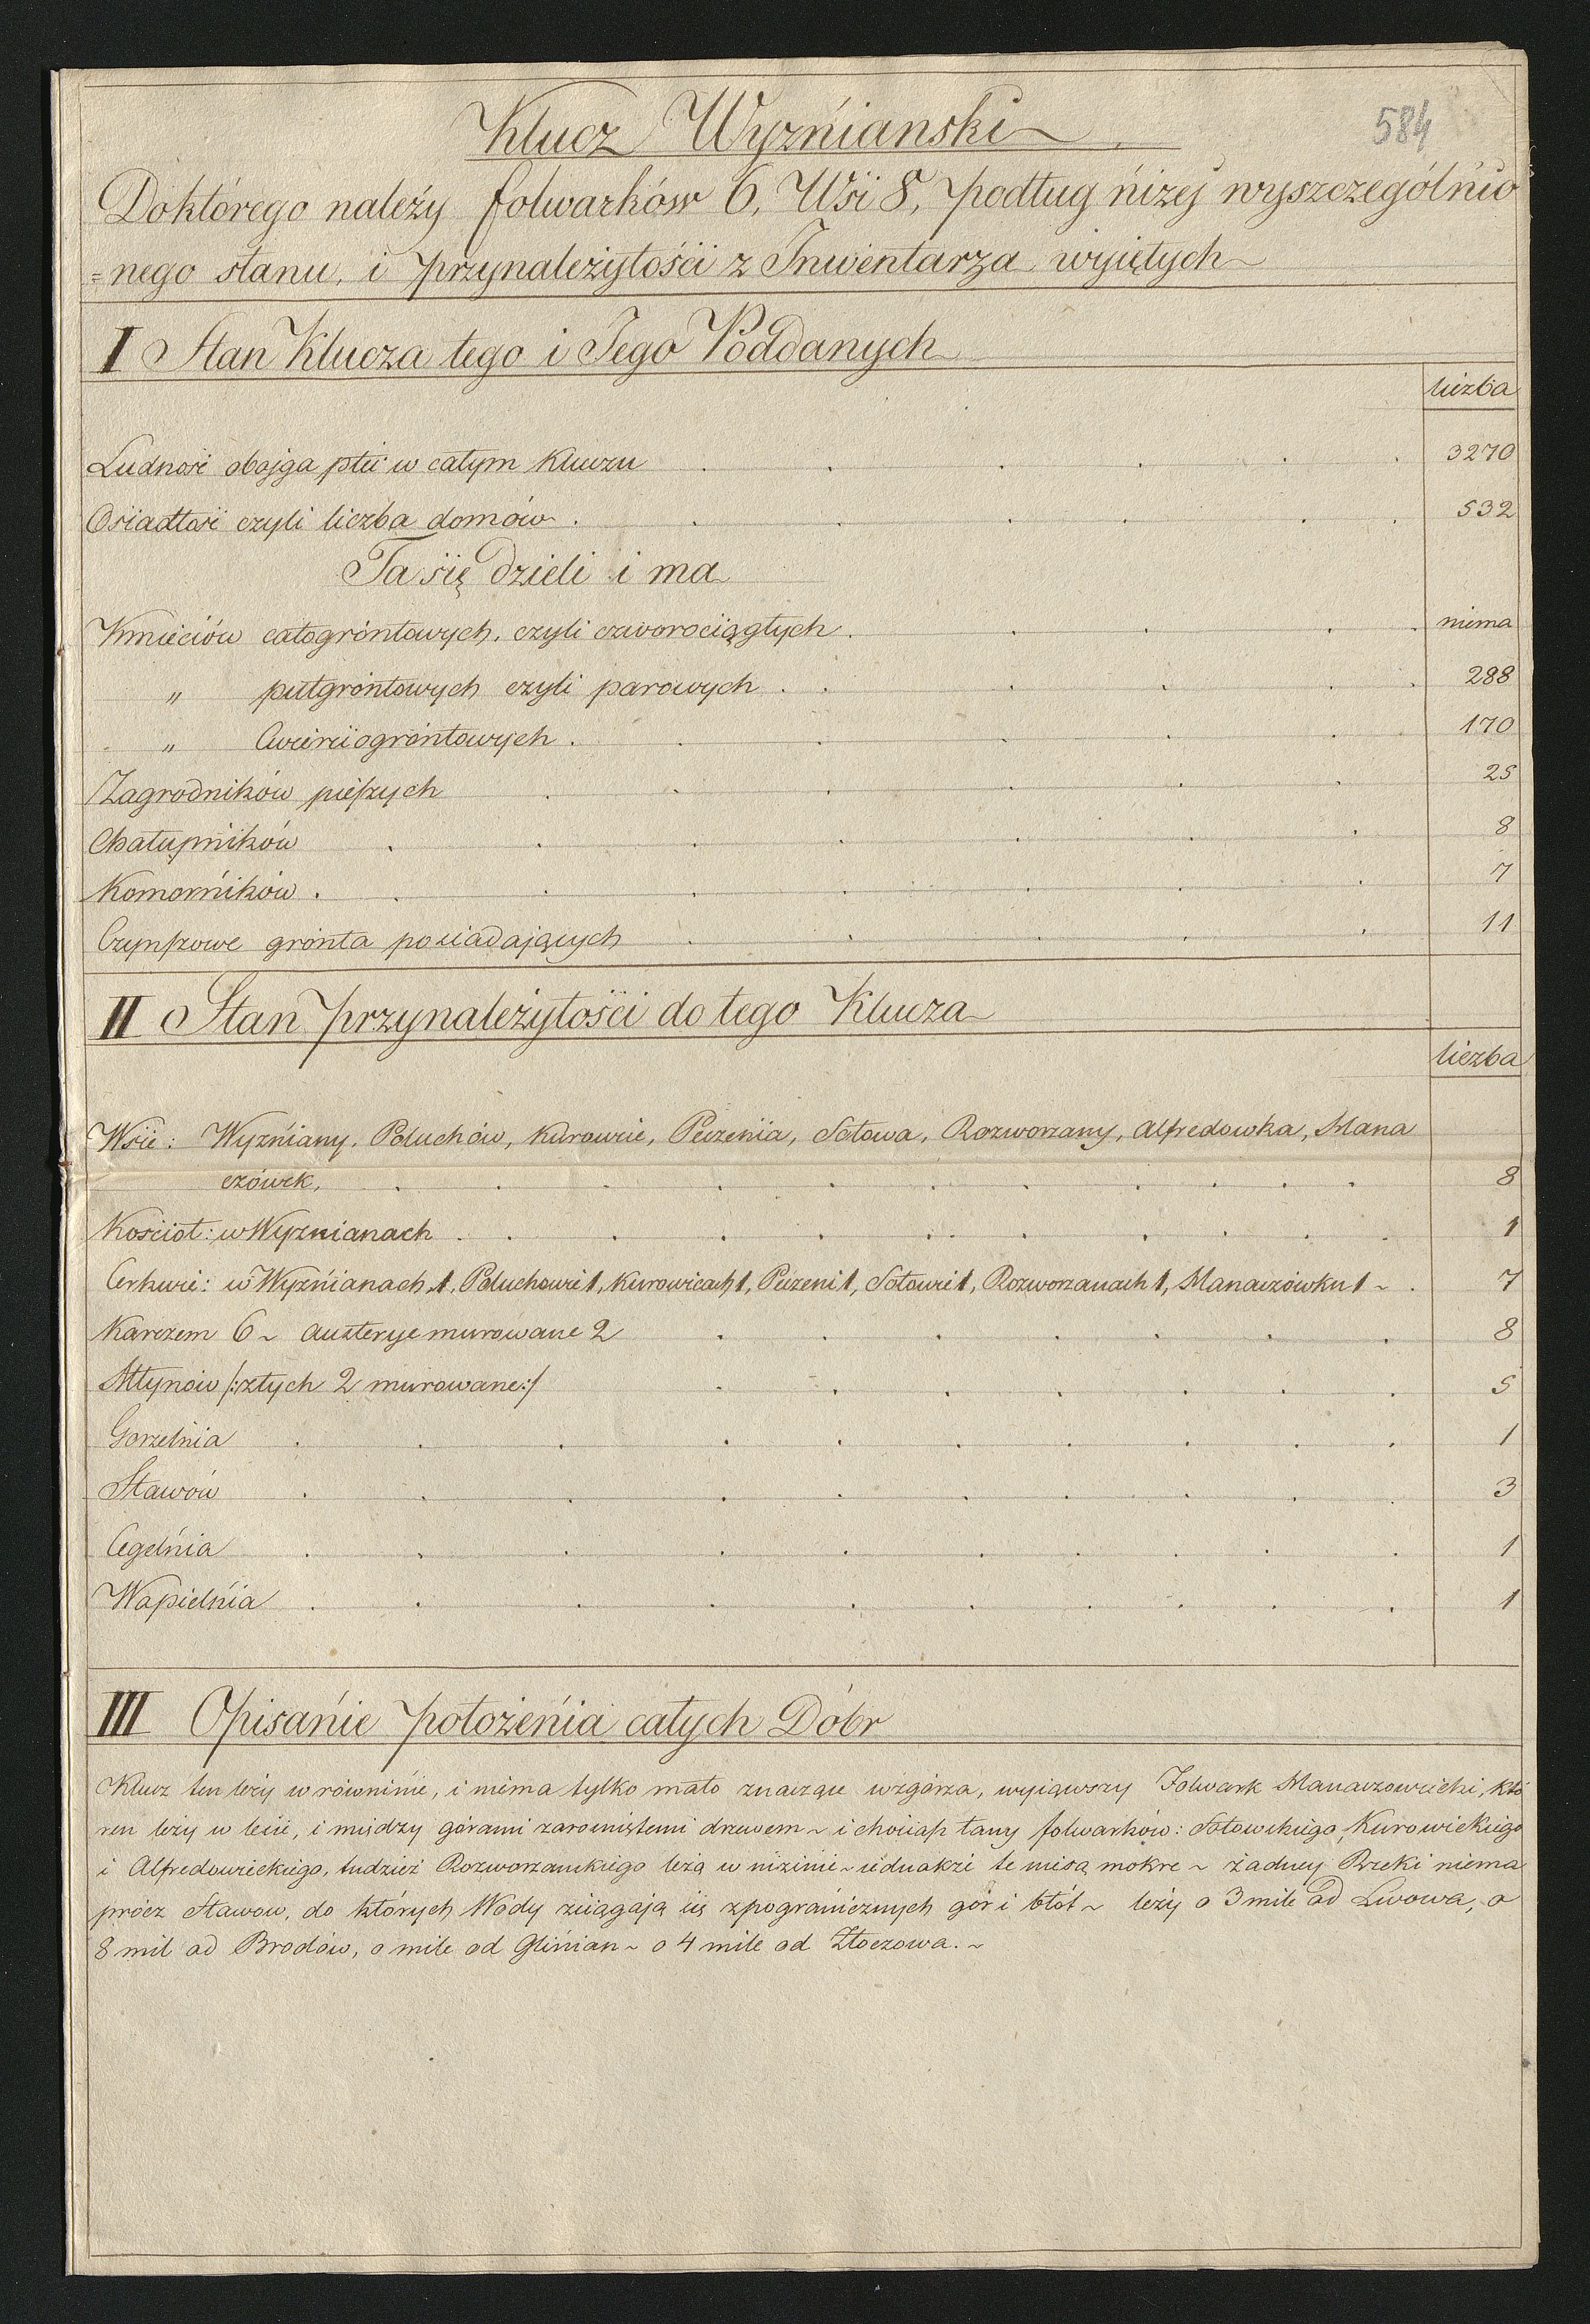 584
Klucz Wyznianski
Doktórego należy folwarków 6, Wsi 8, podług niżej wyszczególnio
=nego stanu, i przynależytości z Inwentarza wyiętych
I Stan Klucza tego i Jego Poddanych
liczba
Ludność obojga płci w całym Kluczu 3270
Osiadłość czyli liczba domów 532
Ta się dzieli i ma
Kmieciów całogróntowych, czyli czworociągłych niema
" pułgróntowych czyli parowych 288
" Cwierciogróntowych 170
Zagrodników pieszych 25
Chałupników 8
Komorników 7
Czynszowe grónta posiadających 11
II Stan przynależytości do tego Klucza
liczba
Wsie: Wyzniany, Poluchów, Kurowice, Peczenia, Sołowa, Rozworzany, Alfredowka, Mana
czówek, 8
Kościoł: w Wyznianach 1
Cerkwie: w Wyznianach 1, Poluchowie 1, Kurowicach 1, Peczeni 1, Sołowie 1, Rozworzanach 1, Manaczówku 1 ~ 7
Karczem 6 ~ Austerye murowane 2 8
Młynów /: z tych 2 murowane :/ 5
Gorzelnia 1
Stawów 3
Cegelnia 1
Wapielnia 1
III Opisanie położenia całych Dóbr
Klucz ten leży w równinie, i niema tylko mało znaczące wzgórza, wyiąwszy Folwark Manaczowiecki, któ
ren leży w lesie, i między górami zarosniętemi drzewem ~ i chociasz łany folwarków: Sołowskiego, Kurowickiego
i Alfredowieckiego, tudzież Rozworzanskiego leżą w nizinie ~ iednakże te niesą mokre ~ żadney Rzeki niema
prócz Stawow, do których Wody ściągają się z pogranicznych gór i błót ~ leży o 3 mile od Lwowa, o
8 mil od Brodów, o mile od Glinian ~ o 4 mile od Złoczowa. ~